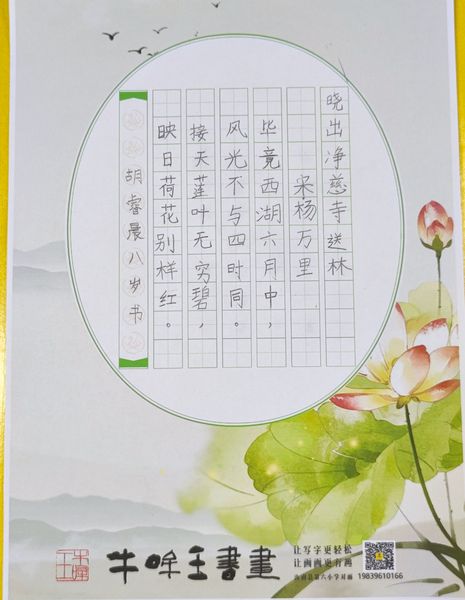 晓出净慈寺送林
宋杨万里
毕竟西湖六月中，
风光不与四时同。
接天莲叶无穷碧，
映日荷花别样红。
胡睿晨八岁书
牛哞王書畫
让写字更轻松
让画画更有趣
汝南县第六小学对面 19839610166